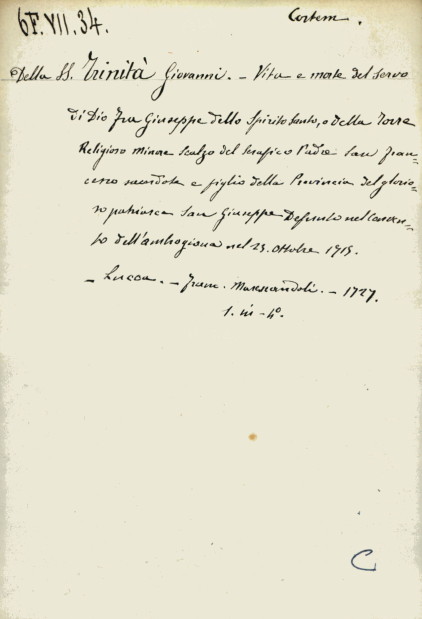 6F.VII.34.
Cortem.
Della SS. Trinità Giovanni. – Vita e morte del servo
di Dio Fra Giuseppe dello Spirito Santo, o della Torre
Religioso Minore Scalzo del Serafico Padre San Fran-
cesco sacerdote e figlio della Provincia del glorio-
so patriarca San Giuseppe Defunto nel Conven-
to dell'ambrogiana nel 25. ottobre 1715.
– Lucca. – Marescandoli. – 1727.
1. in – 4º.
C